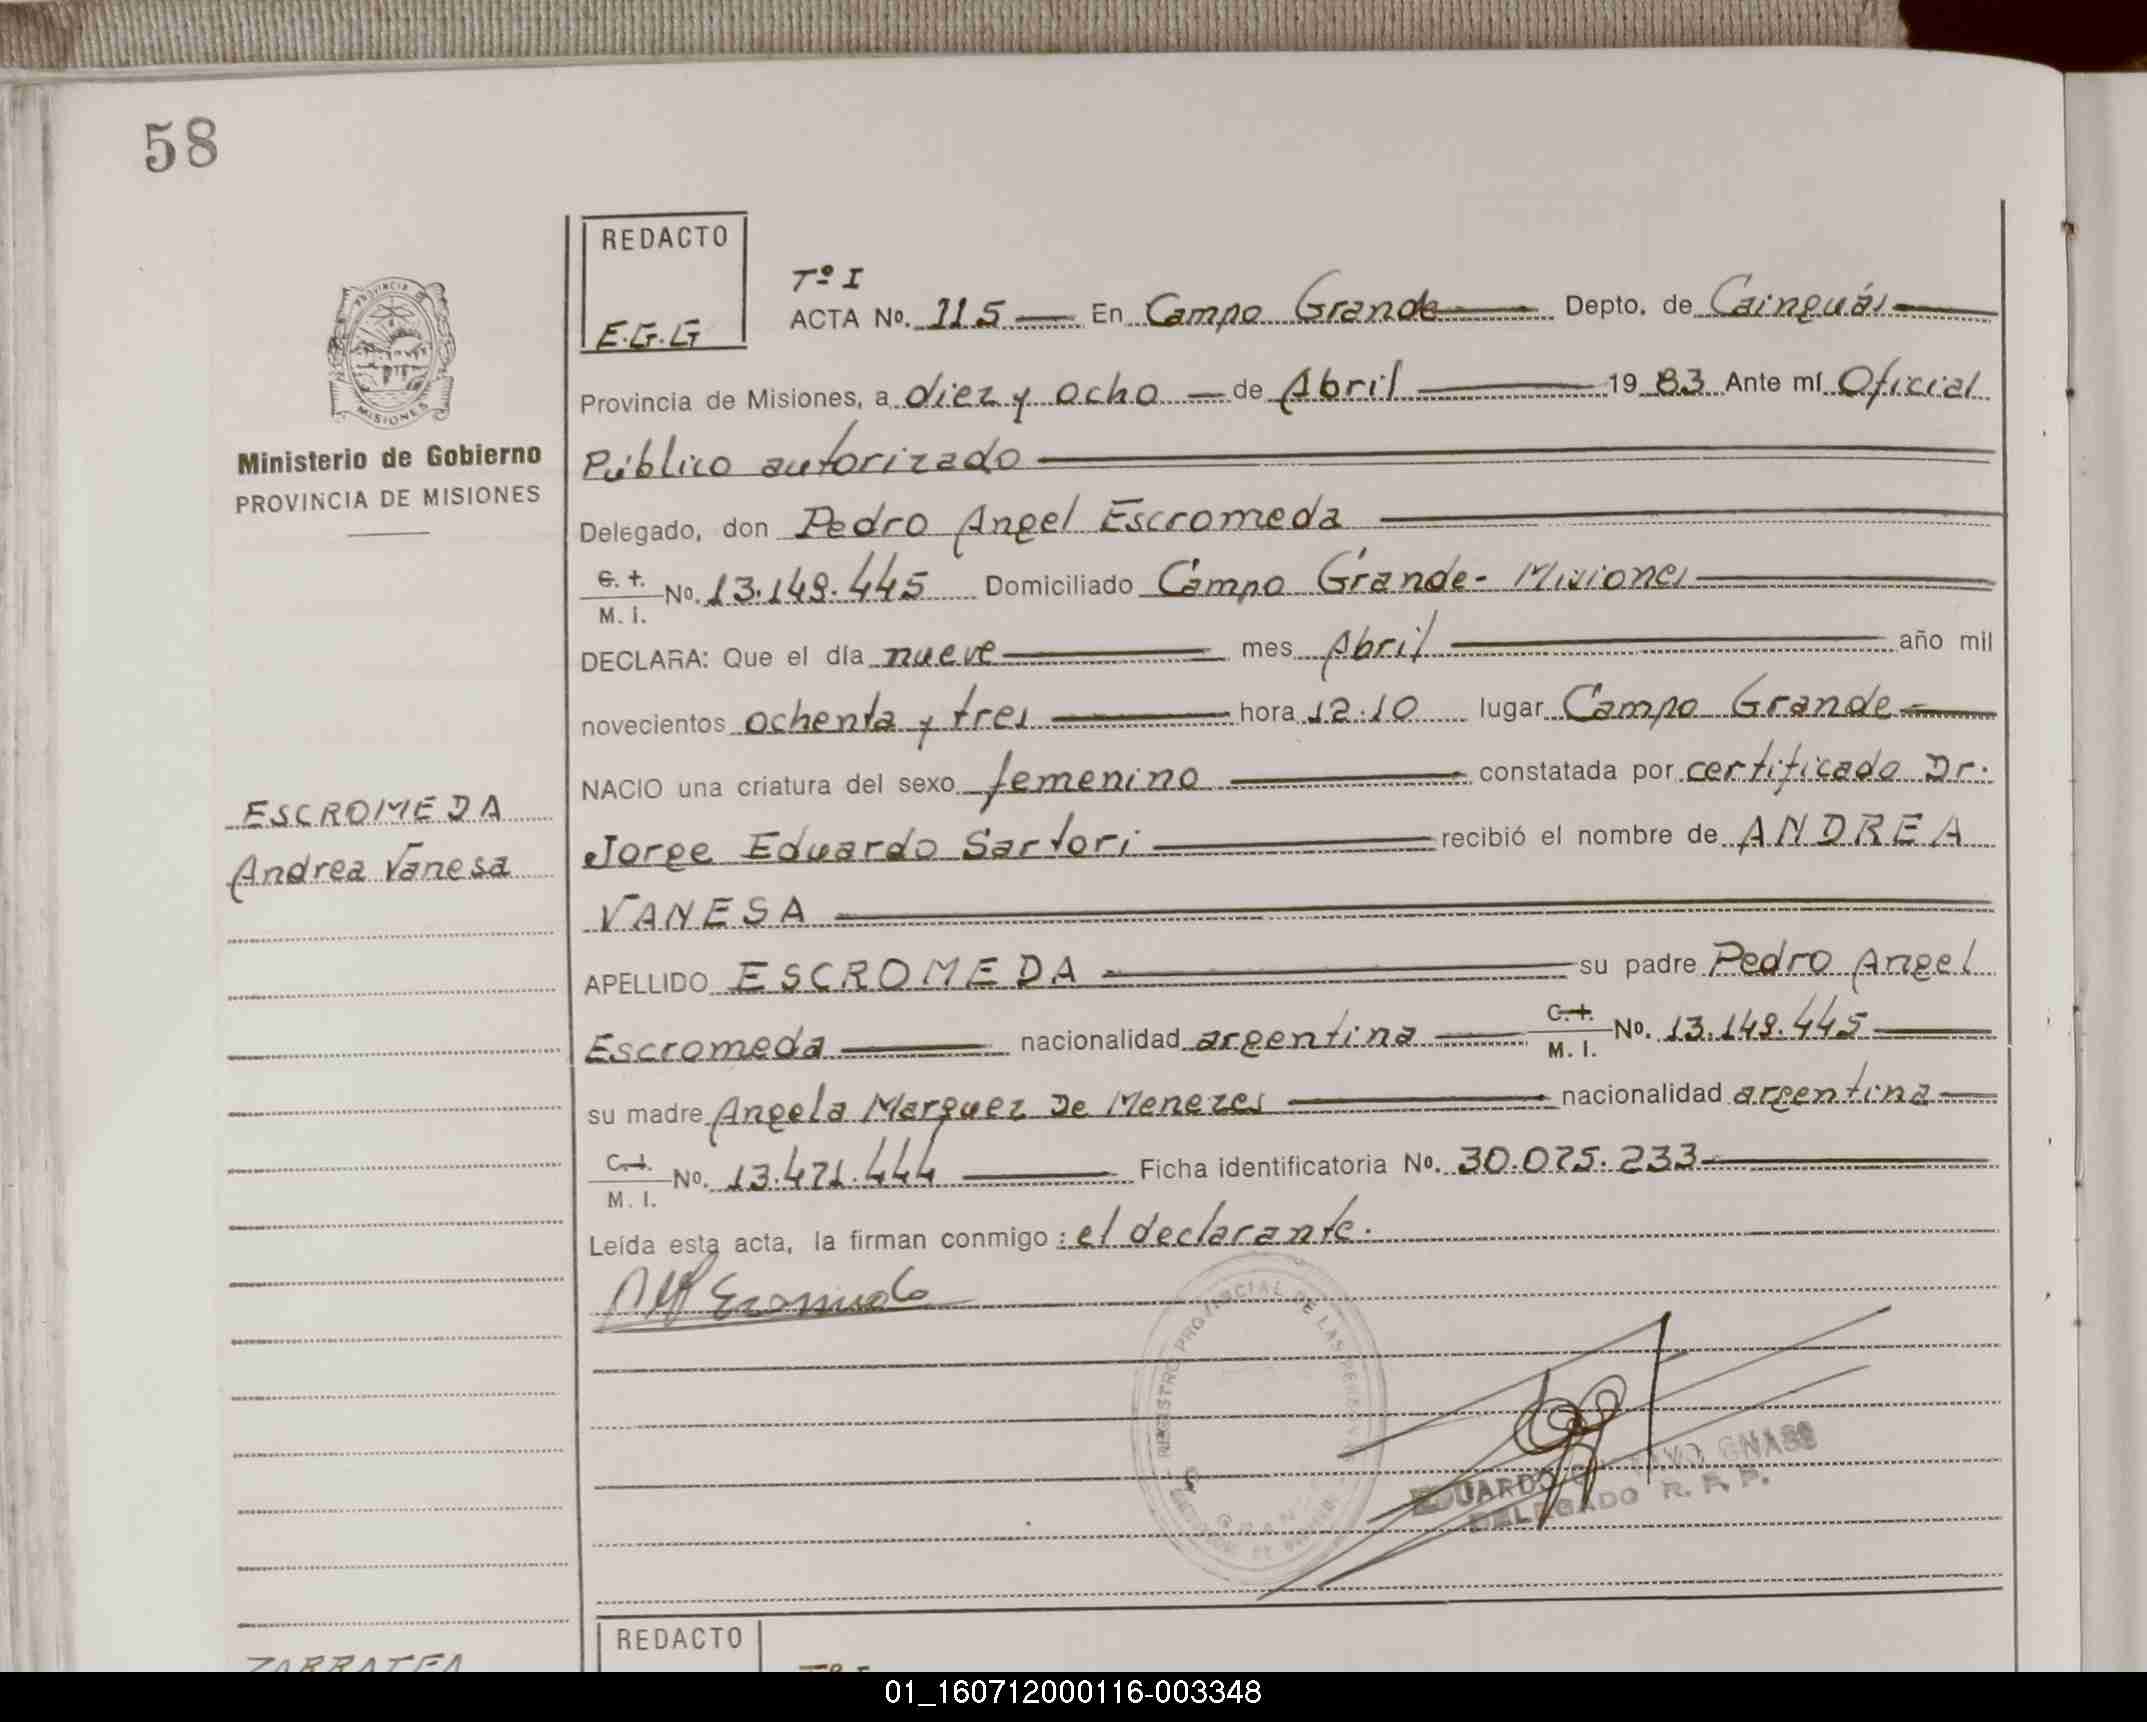 58
REDACTO
E.G.G
PROVINCIA
MISIONES
Ministerio de Gobierno
PROVINCIA DE MISIONES
ESCROMEDA
Andrea Vanesa
Tº I
ACTA Nº. 115 En Campo Grande Depto. de Cainguás
Provincia de Misiones, a diez y ocho de Abril 19 83 Ante mí Oficial
Público autorizado
Delegado, don Pedro Angel Escromeda
C. I. / M. I. Nº. 13.149.445 Domiciliado Campo Grande - Misiones
DECLARA: Que el día nueve mes Abril año mil
novecientos ochenta y tres hora 12.10 lugar Campo Grande
NACIO una criatura del sexo femenino constatada por certificado Dr.
Jorge Eduardo Sartori recibió el nombre de ANDREA
VANESA
APELLIDO ESCROMEDA su padre Pedro Angel
Escromeda nacionalidad argentina C. I. / M. I. Nº. 13.149.445
su madre Angela Marquez De Menezes nacionalidad argentina
C. I. / M. I. Nº. 13.471.444 Ficha identificatoria Nº. 30.075.233
Leída esta acta, la firman conmigo: el declarante.
REGISTRO PROVINCIAL DE LAS PERSONAS
EDUARDO GNASS
DELEGADO R. P. P.
REDACTO
01_160712000116-003348